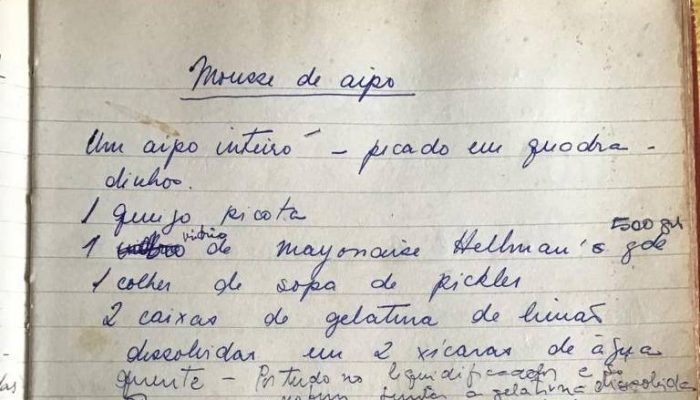 Mousse de aipo
Um aipo inteiro – picado em quadra-
dinhos.
1 queijo picota
1 vidro de mayonaise Hellman's gde 500 gr
1 colher de sopa de pickles
2 caixas de gelatina de limão
dissolvidas em 2 xícaras de água
quente – Por tudo no liquidificador e
a gelatina dissolvida